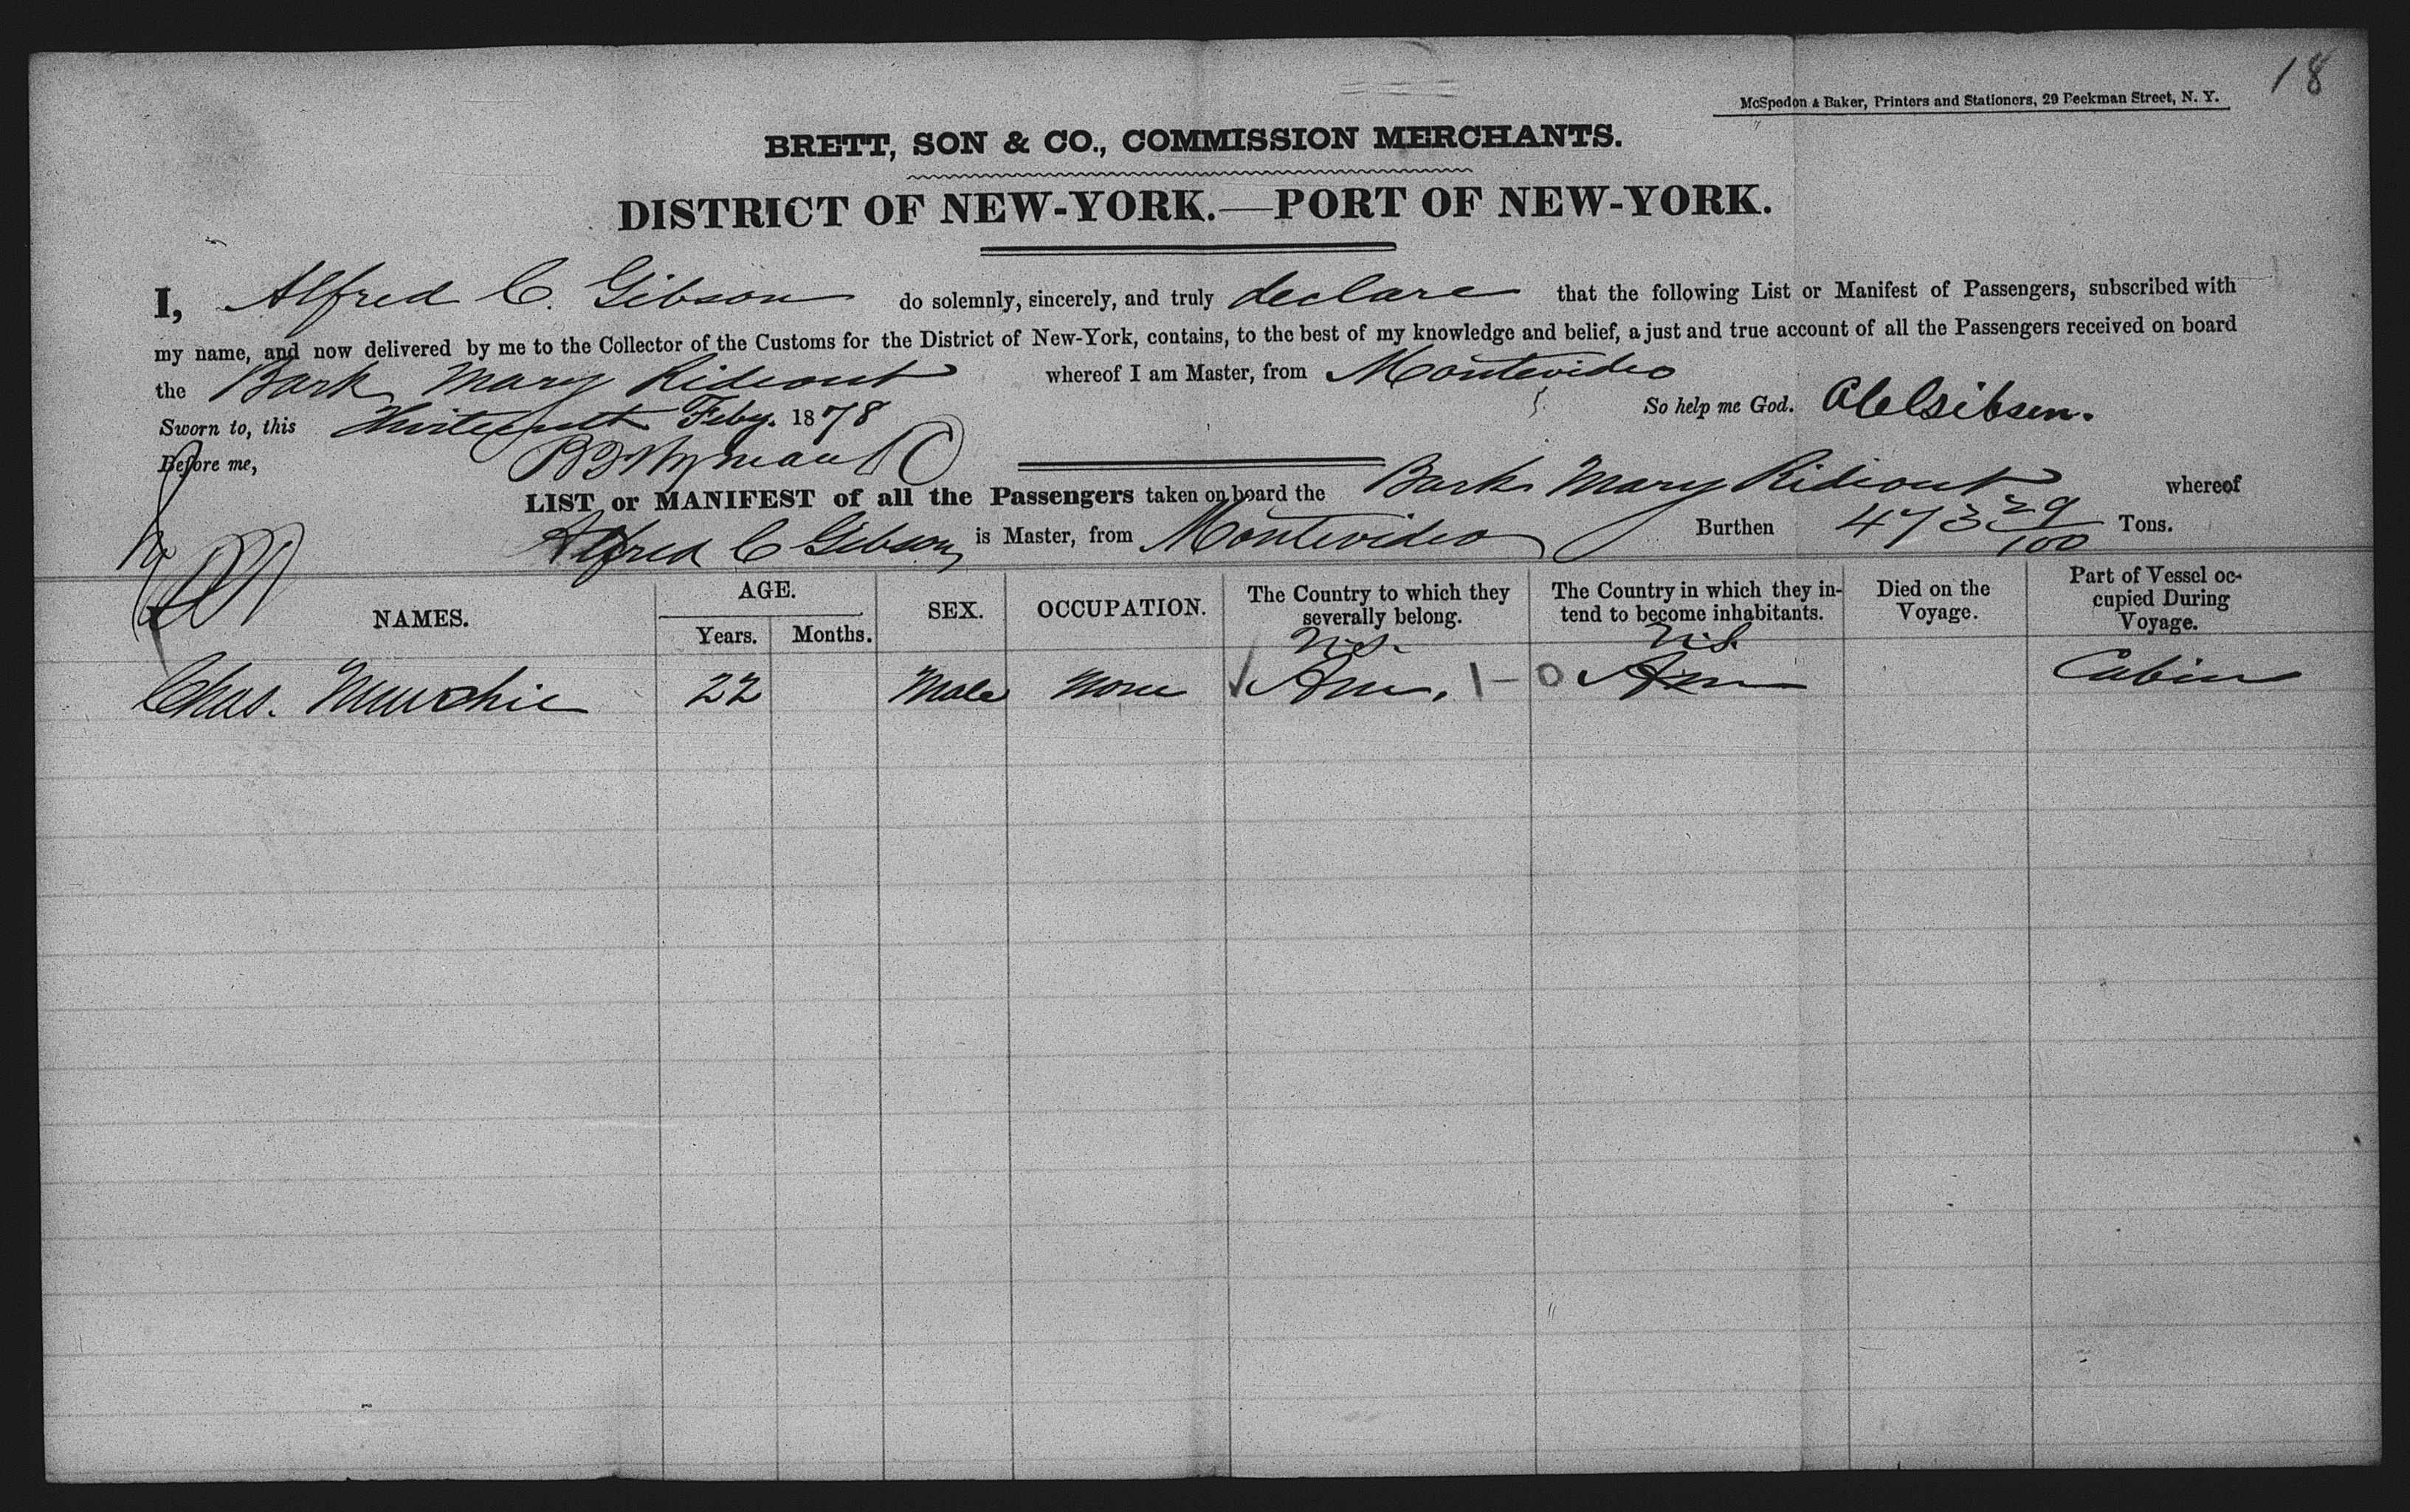 18
McSpedon & Baker, Printers and Stationers, 29 Beekman Street, N. Y.
BRETT, SON & CO., COMMISSION MERCHANTS.
DISTRICT OF NEW-YORK.—PORT OF NEW-YORK.
I, Alfred C. Gibson do solemnly, sincerely, and truly declare that the following List or Manifest of Passengers, subscribed with
my name, and now delivered by me to the Collector of the Customs for the District of New-York, contains, to the best of my knowledge and belief, a just and true account of all the Passengers received on board
the Bark Mary Rideout whereof I am Master, from Montevideo
So help me God. A C Gibson.
Sworn to, this Feby. 1878
Before me,
LIST or MANIFEST of all the Passengers taken on board the Bark Mary Rideout whereof
Alfred C Gibson is Master, from Montevideo Burthen 473 29/100 Tons.
NAMES. AGE. Years. Months. SEX. OCCUPATION. The Country to which they severally belong. The Country in which they intend to become inhabitants. Died on the Voyage. Part of Vessel occupied During Voyage.
U.S. U.S.
Chas. Murchie 22 Male None Am. 1-0 Am Cabin